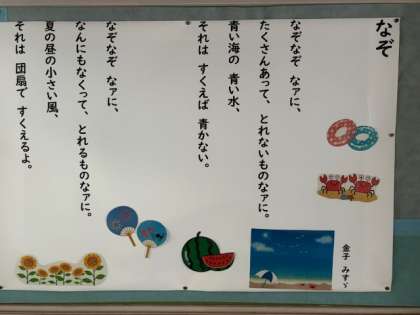 なぞ
金子 みすゞ
なぞなぞ なァに、
たくさんあって、とれないものなァに。
青い海の 青い水、
それは すくえば 青かない。
なぞなぞ なァに、
なんにもなくって、とれるものなァに。
夏の昼の小さい風、
それは 団扇で すくえるよ。